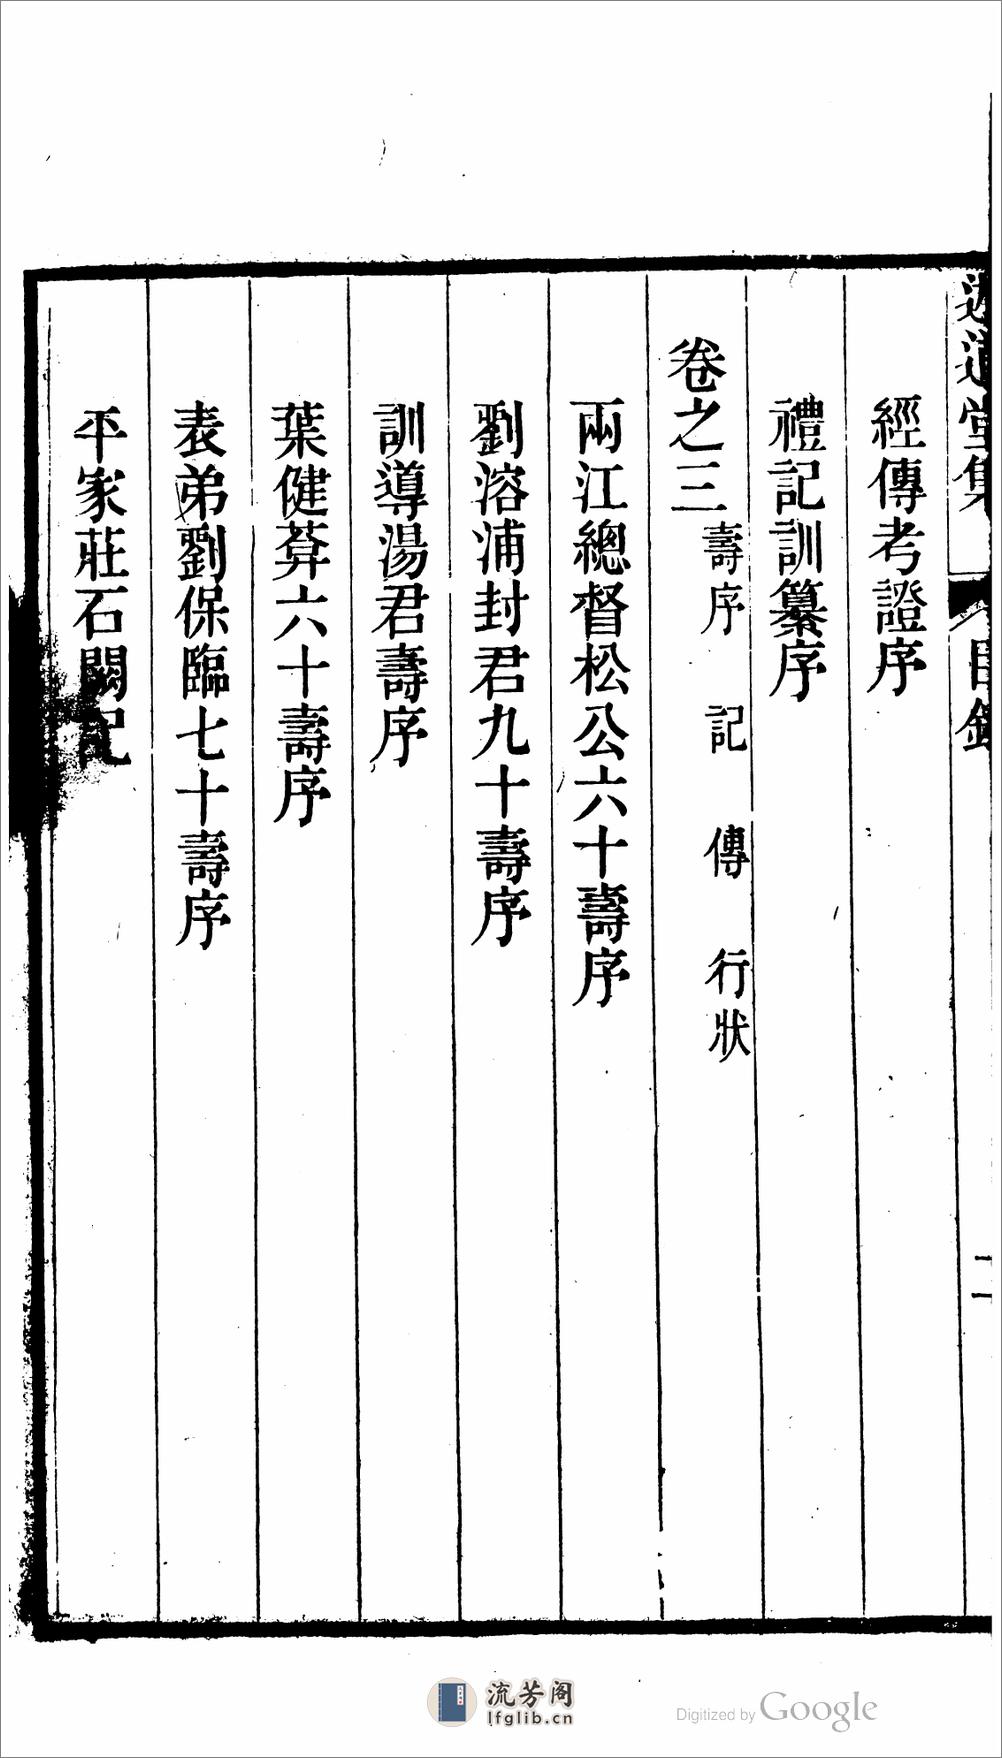 堂集
目錄
二
經傳考證序
禮記訓纂序
卷之三 壽序 記 傳 行狀
兩江總督松公六十壽序
劉溶浦封君九十壽序
訓導湯君壽序
葉健葊六十壽序
表弟劉保臨七十壽序
平家莊石闕記
流芳阁
lfglib.cn
Digitized by Google